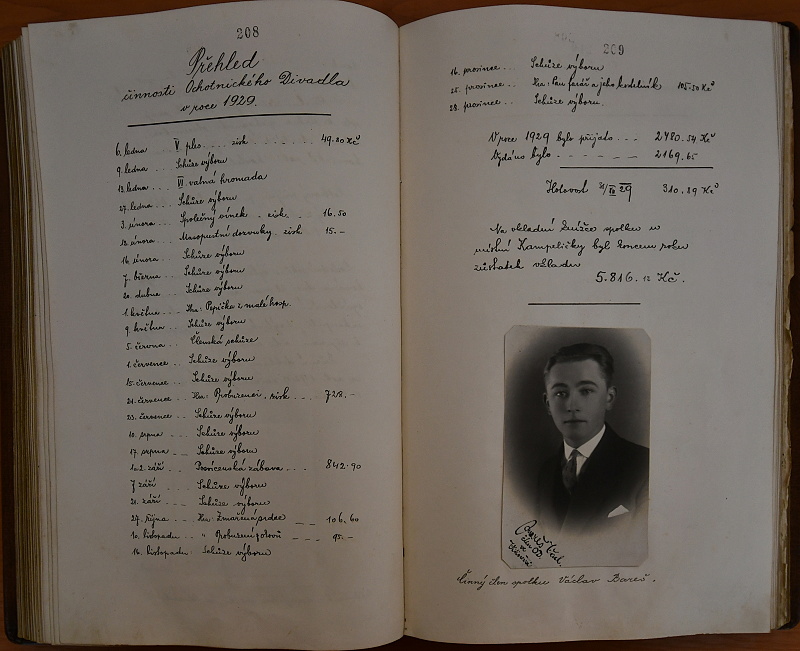 208
Přehled
činnosti Ochotnického Divadla
v roce 1929.
6. ledna V ples zisk 49.80 Kč
9. ledna Schůze výboru
13. ledna VI valná hromada
27. ledna Schůze výboru
3. února Společný věnek . zisk . 16.50
12. února Masopustní dozvuky, zisk 15.-
16. února Schůze výboru
7. března Schůze výboru
20. dubna Schůze výboru
1. května Hra: Pepička z malé hosp.
9. května Schůze výboru
5. června Členská schůze
1. července Schůze výboru
15. července Schůze výboru
21. července Hra: Probuzenci, zisk 728.-
23. července Schůze výboru
10. srpna Schůze výboru
17. srpna Schůze výboru
1. a 2. září Posvícenská zábava 842.90
7 září Schůze výboru
21. září Schůze výboru
27. října Hra: Zmařená srdce 106.60
10. listopadu " 95.-
16. listopadu: Schůze výboru
209
16. prosince Schůze výboru
25. prosince Hra: Pan farář a jeho kostelník 105.50 Kč
28. prosince Schůze výboru.
V roce 1929 bylo přijato 2480.54 Kč
Vydáno bylo 2169.65
Hotovost 31/XII 29 310.89 Kč
Na vkladní knížce spolku u
místní Kampeličky byl koncem roku
zůstatek vkladu
5.816.12 Kč.
Činný člen spolku Václav Bareš.